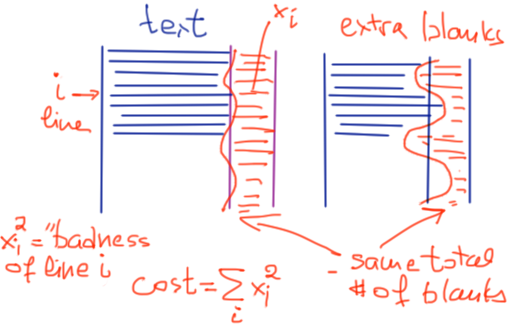 text
x_i
extra blanks
i
line
x_i^2 = "badness
of line i
cost = ∑_i x_i^2
- same total
# of blanks